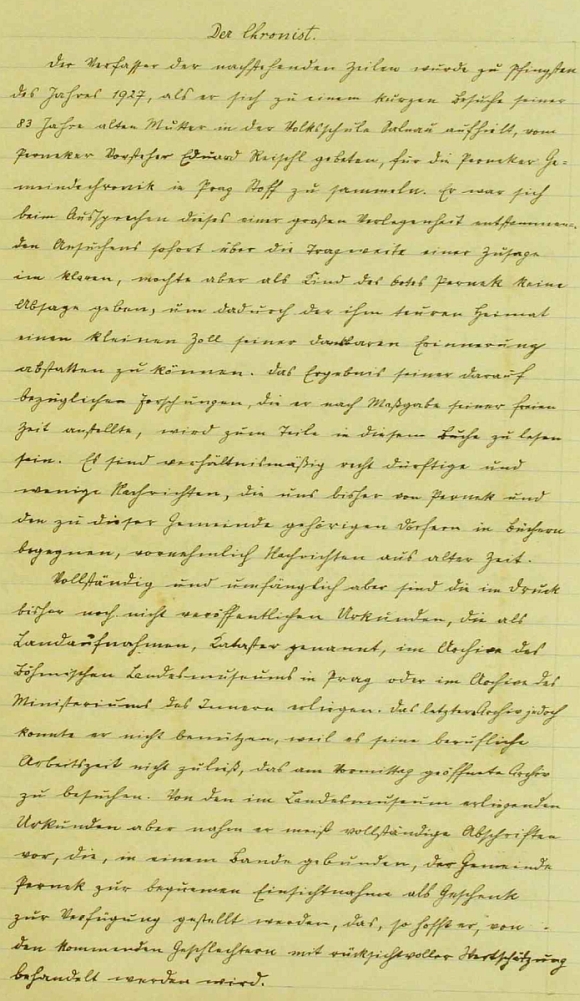 Der Chronist.
Der Verfasser der nachstehenden Zeilen wurde zu Pfingsten
des Jahres 1927, als er sich zu einem kurzen Besuche seiner
83 Jahre alten Mutter in der Volksschule Salnau aufhielt, vom
Perneker Vorsteher Eduard Reischl gebeten, für die Perneker Ge=
meindechronik in Prag Stoff zu sammeln. Er war sich
beim Aussprechen dieses einer großen Verlegenheit entstammen=
den Ansuchens sofort über die Tragweite einer Zusage
im klaren, mochte aber als Kind des Ortes Pernek keine
Absage geben, um dadurch der ihm teuren Heimat
einen kleinen Zoll seiner dankbaren Erinnerung
abstatten zu können. Das Ergebnis seiner darauf
bezüglichen Forschungen, die er nach Maßgabe seiner freien
Zeit anstellte, wird zum Teile in diesem Buche zu lesen
sein. Es sind verhältnismäßig recht dürftige und
wenige Nachrichten, die uns bisher von Pernek und
den zu dieser Gemeinde gehörigen Dörfern in Büchern
begegnen, vornehmlich Nachrichten aus alter Zeit.
Vollständig und umfänglich aber sind die im Druck
bisher noch nicht veröffentlichten Urkunden, die als
Landaufnahmen, Kataster genannt, im Archive des
Böhmischen Landesmuseums in Prag oder im Archive des
Ministeriums des Innern erliegen. Das letztere Archiv jedoch
konnte er nicht benützen, weil es seine berufliche
Arbeitszeit nicht zuließ, das am Vormittag geöffnete Archiv
zu besuchen. Von den im Landesmuseum erliegenden
Urkunden aber nahm er meist vollständige Abschriften
vor, die, in einem Bande gebunden, der Gemeinde
Pernek zur bequemen Einsichtnahme als Geschenk
zur Verfügung gestellt werden, das, so hofft er, von
den kommenden Geschlechtern mit rücksichtvoller Wertschätzung
behandelt werden wird.